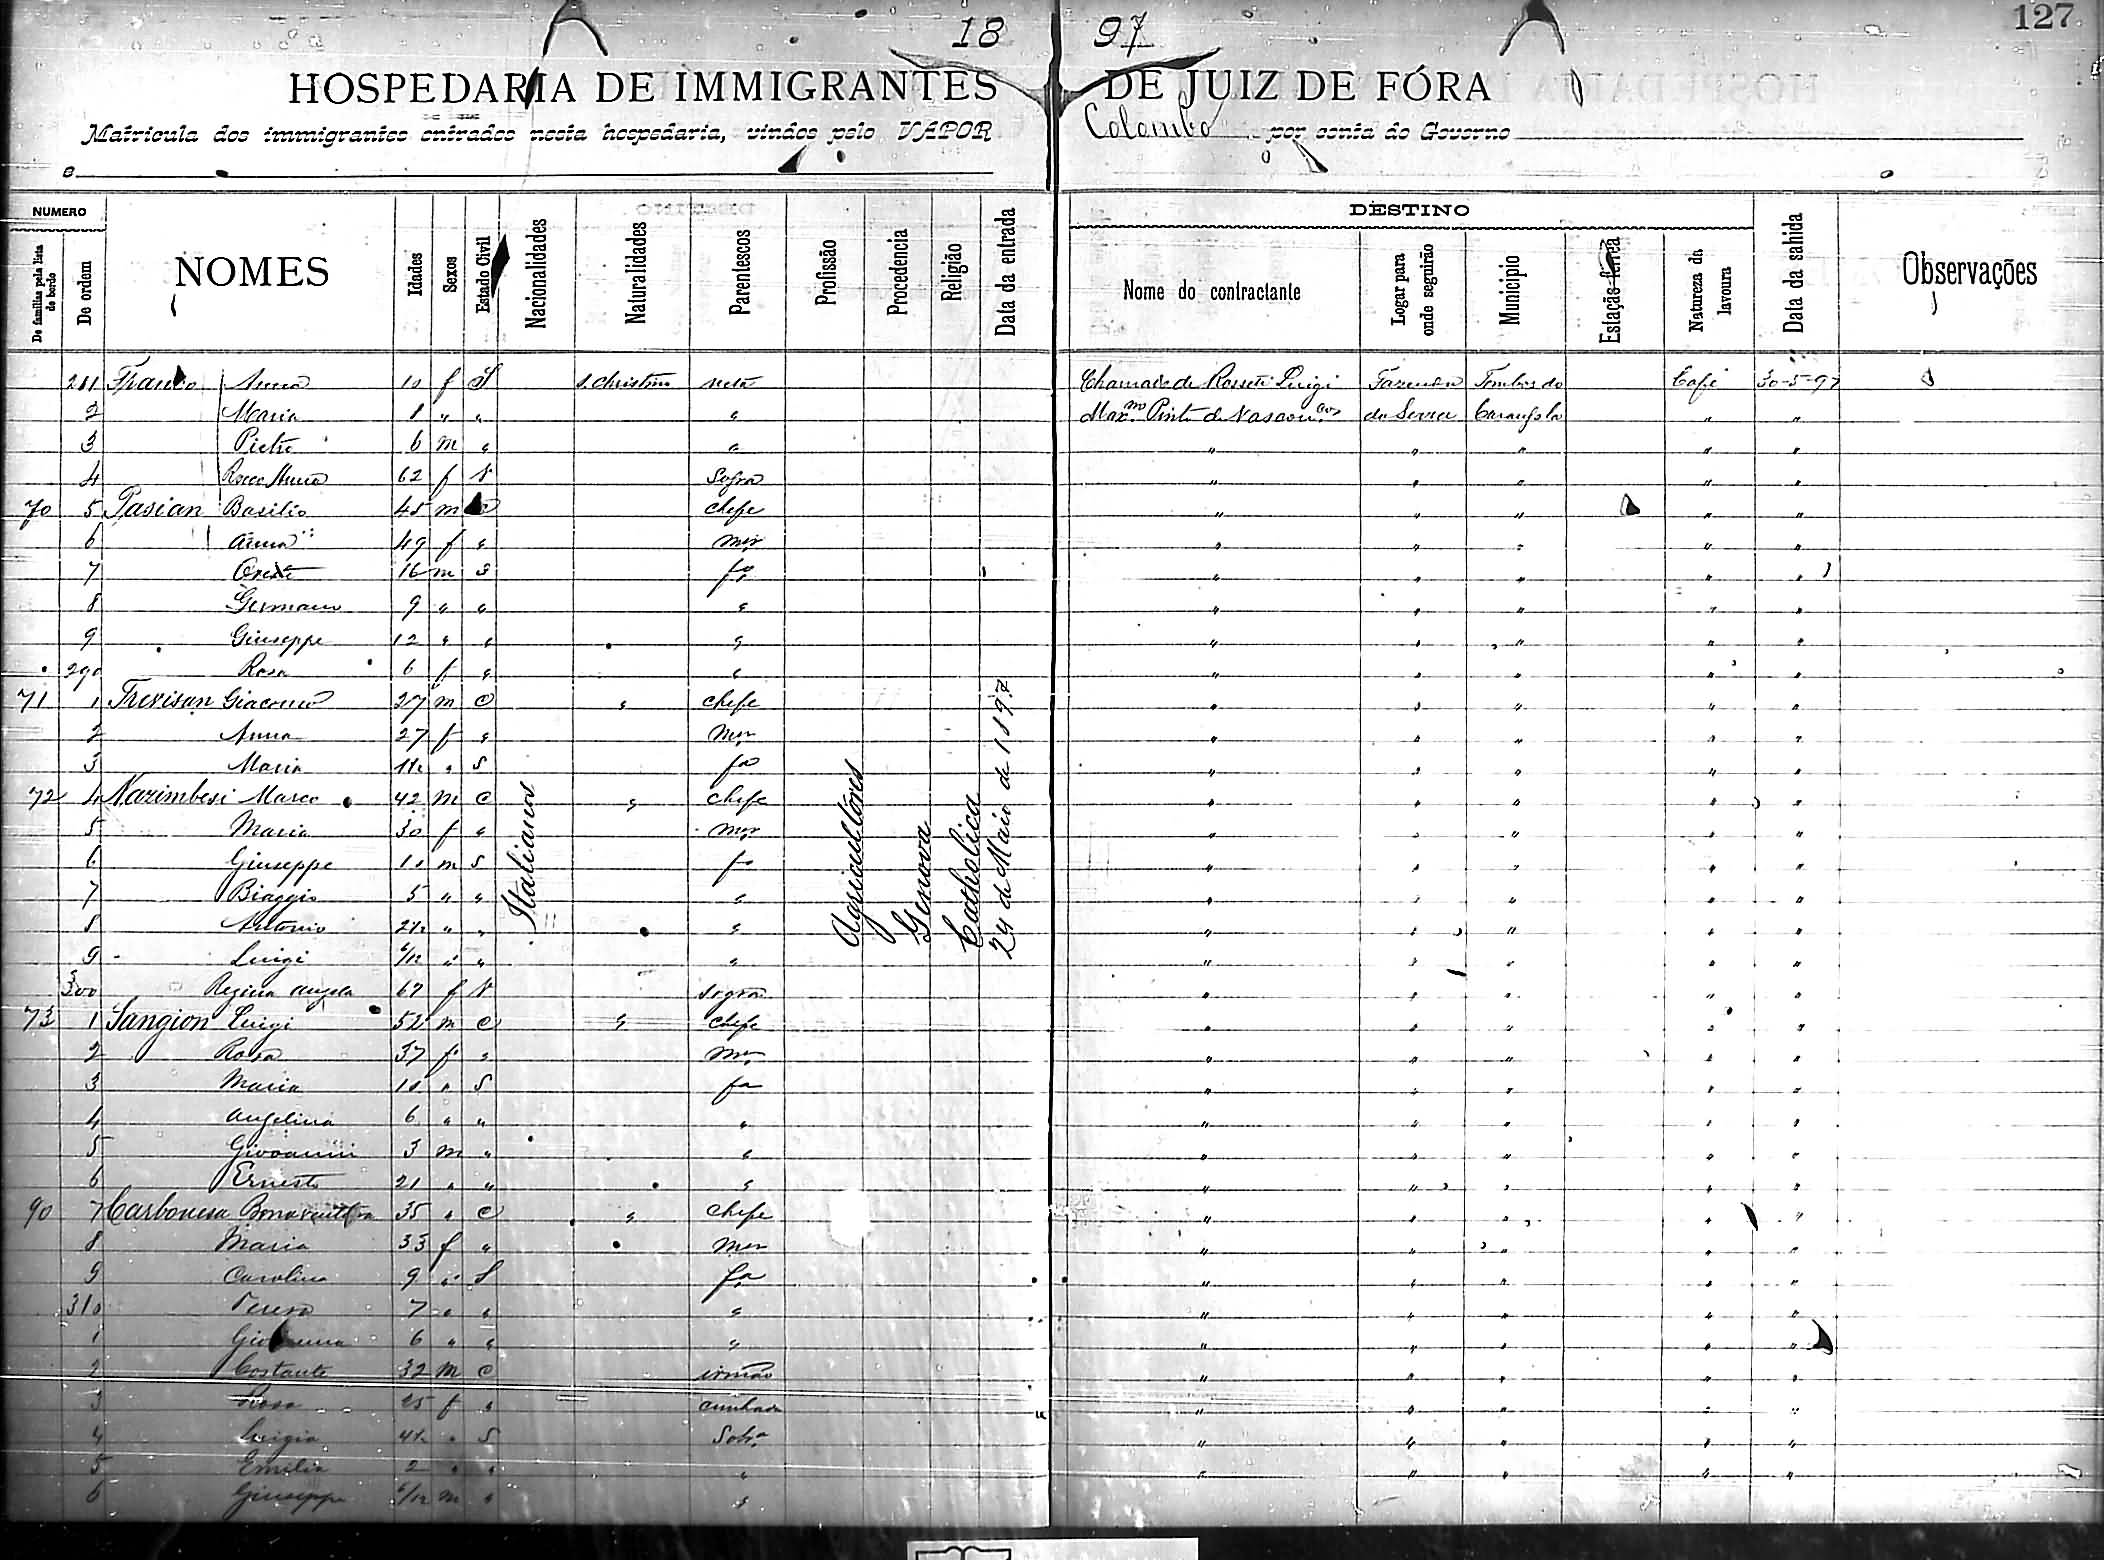 127
18 97
HOSPEDARIA DE IMMIGRANTES DE JUIZ DE FÓRA
Matricula dos immigrantes entrados nesta hospedaria, vindos pelo VAPOR Colombo por conta do Governo
NUMERO DESTINO
De familias pela lista de bordo De ordem NOMES Idades Sexos Estado Civil Nacionalidades Naturalidades Parentescos Profissão Procedencia Religião Data da entrada Nome do contractante Logar para onde seguirão Municipio Estação ferrea Natureza da lavoura Data da sahida Observações
281 Anna 10 f S S. Christina neta Chamado de Rosseti Luigi Fazenda Tombos do Café 30-5-97
2 Maria 8 " " " Pinto de da Serra Carangola " "
3 Pietro 6 m " " " " " " "
4 Anna 62 f V Sogra " " " " "
70 5 Pasian Basilio 45 m chefe " " " " "
6 Anna 49 f " mer " " " " "
7 16 m S fo " " " " "
8 Germano 9 " " " " " " " "
9 Giuseppe 12 " " " " " " " "
290 Rosa 6 f " " " " " " "
71 1 Trevisan Giacomo 27 m C " chefe " " " " "
2 Anna 27 f " mer " " " " "
3 Maria " S fa " " " " "
72 4 Marco 42 m C " chefe " " " " "
5 Maria 30 f " mer " " " " "
6 Giuseppe 10 m S fo " " " " "
7 Biaggio 5 " " " " " " " "
8 Antonio " " " " " " " "
9 Luigi 6/12 " " " " " " " "
300 Regina Angela 67 f V sogra " " " " "
73 1 Sangion Luigi 52 m C " chefe " " " " "
2 Rosa 37 f " mer " " " " "
3 Maria 10 " S fa " " " " "
4 Angelina 6 " " " " " " " "
5 Giovanni 3 m " " " " " " "
6 Ernesto 21 " " " " " " " "
90 7 Bonaventura 35 " C " chefe " " " " "
8 Maria 33 f " mer " " " " "
9 Carolina 9 " S fa " " " " "
310 Teresa 7 " " " " " " " "
1 Giovanna 6 " " " " " " " "
2 Costante 32 m C irmão " " " " "
3 Rosa 25 f " cunhada " " " " "
4 Luigia " S Sobra " " " " "
5 Emilia 2 " " " " " " " "
6 Giuseppe 6/12 m " "
Italianos
Agricultores
Genova
Catholica
24 de Maio de 1897